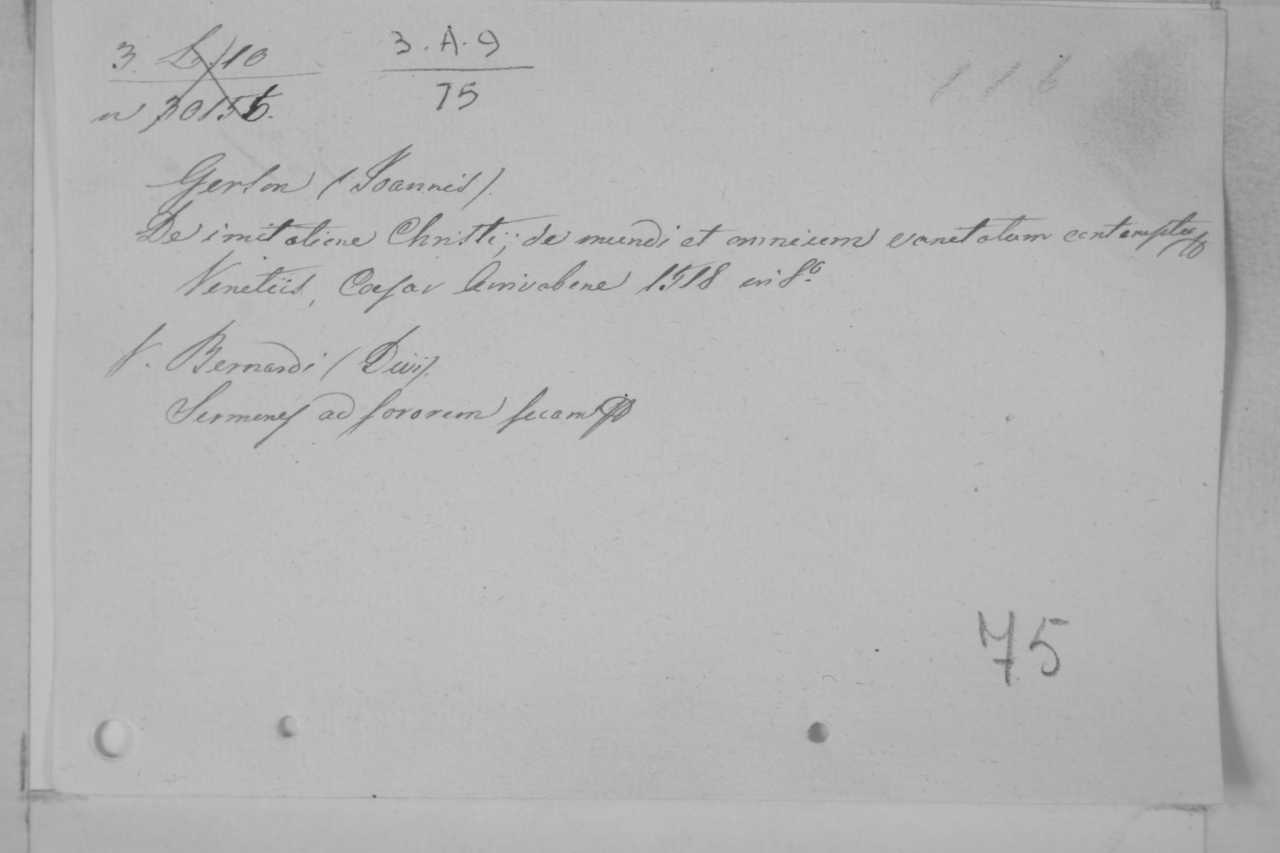 3. L. 10
3.A.9
n 30155.
75
116
Gerson (Joannis).
De imitatione Christi; de mundi et omnium vanetatum contemptu
Venetiis, Caesar Arrivabene 1518 in 8º
V. Bernardi (Divi).
Sermones ad sororem suam
75